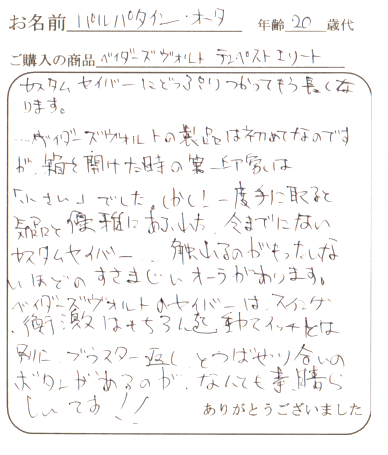 お名前 パルパタイン・オータ 年齢 20 歳代
ご購入の商品 ベイダーズヴォルト テンペストエリート
カスタムセイバーにどっぷりつかってもう長くな
ります。
…ベイダーズヴォルトの製品は初めてなのです
が、箱を開けた時の第一印象は
「小さい」でした。しかし！一度手に取ると
気品と優雅にあふれた、今までにない
カスタムセイバー… 触れるのがもったいな
いほどのすさまじいオーラがあります。
ベイダーズヴォルトのセイバーは、スイング
、衝激はもちろん起動スイッチとは
別に、ブラスター返し、とつばぜり合いの
ボタンがあるのが、なんとも素晴ら
しいです！！
ありがとうございました